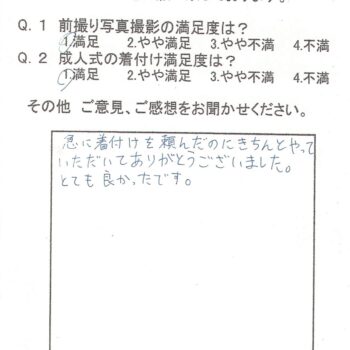 Q.1 前撮り写真撮影の満足度は？
1.満足 2.やや満足 3.やや不満 4.不満
Q.2 成人式の着付け満足度は？
1.満足 2.やや満足 3.やや不満 4.不満
その他 ご意見、ご感想をお聞かせください。
急に着付けを頼んだのにきちんとやって
いただいてありがとうございました。
とても良かったです。